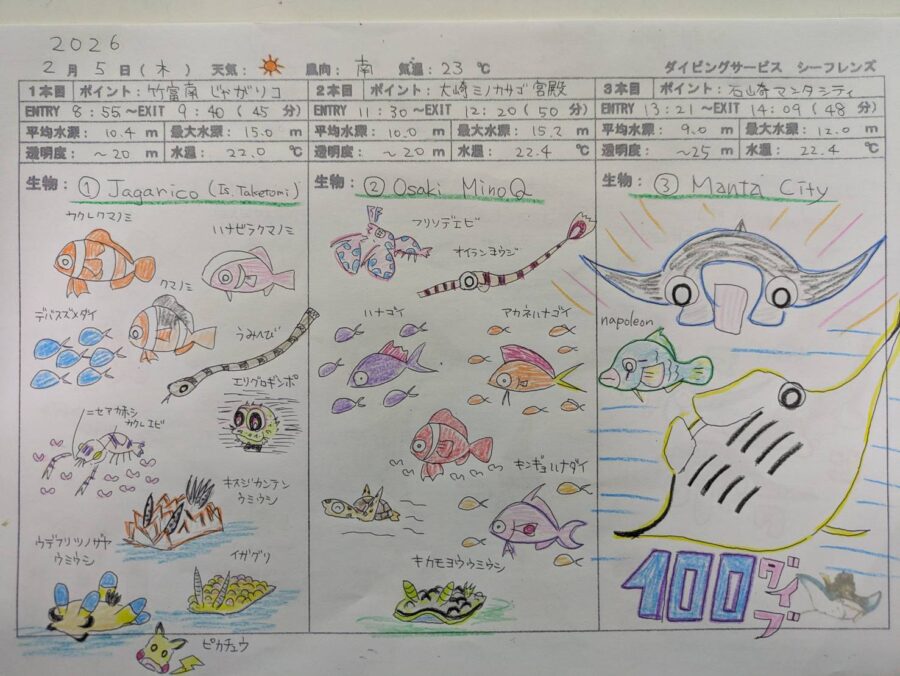 2026
2月5日(木) 天気: 風向: 南 気温: 23℃ ダイビングサービス シーフレンズ
1本目 ポイント: 竹富南 じゃがリコ
ENTRY 8:55~EXIT 9:40(45分)
平均水深: 10.4 m 最大水深: 15.0 m
透明度: ~20 m 水温: 22.0 ℃
生物: ① Jagarico (Is. Taketomi)
カクレクマノミ
ハナビラクマノミ
クマノミ
デバスズメダイ
うみへび
エリグロギンポ
ニセアカホシ
カクレエビ
キスジカンテン
ウミウシ
ウデフリツノザヤ
ウミウシ
イガグリ
ピカチュウ
2本目 ポイント: 大崎ミノカサゴ宮殿
ENTRY 11:30~EXIT 12:20(50分)
平均水深: 10.0 m 最大水深: 15.2 m
透明度: ~20 m 水温: 22.4 ℃
生物: ② Osaki MinoQ
フリソデエビ
オイランヨウジ
ハナゴイ
アカネハナゴイ
キンギョハナダイ
キカモヨウウミウシ
3本目 ポイント: 石崎マンタシティ
ENTRY 13:21~EXIT 14:09(48分)
平均水深: 9.0 m 最大水深: 12.0 m
透明度: ~25 m 水温: 22.4 ℃
生物: ③ Manta City
napoleon
100ダイブ